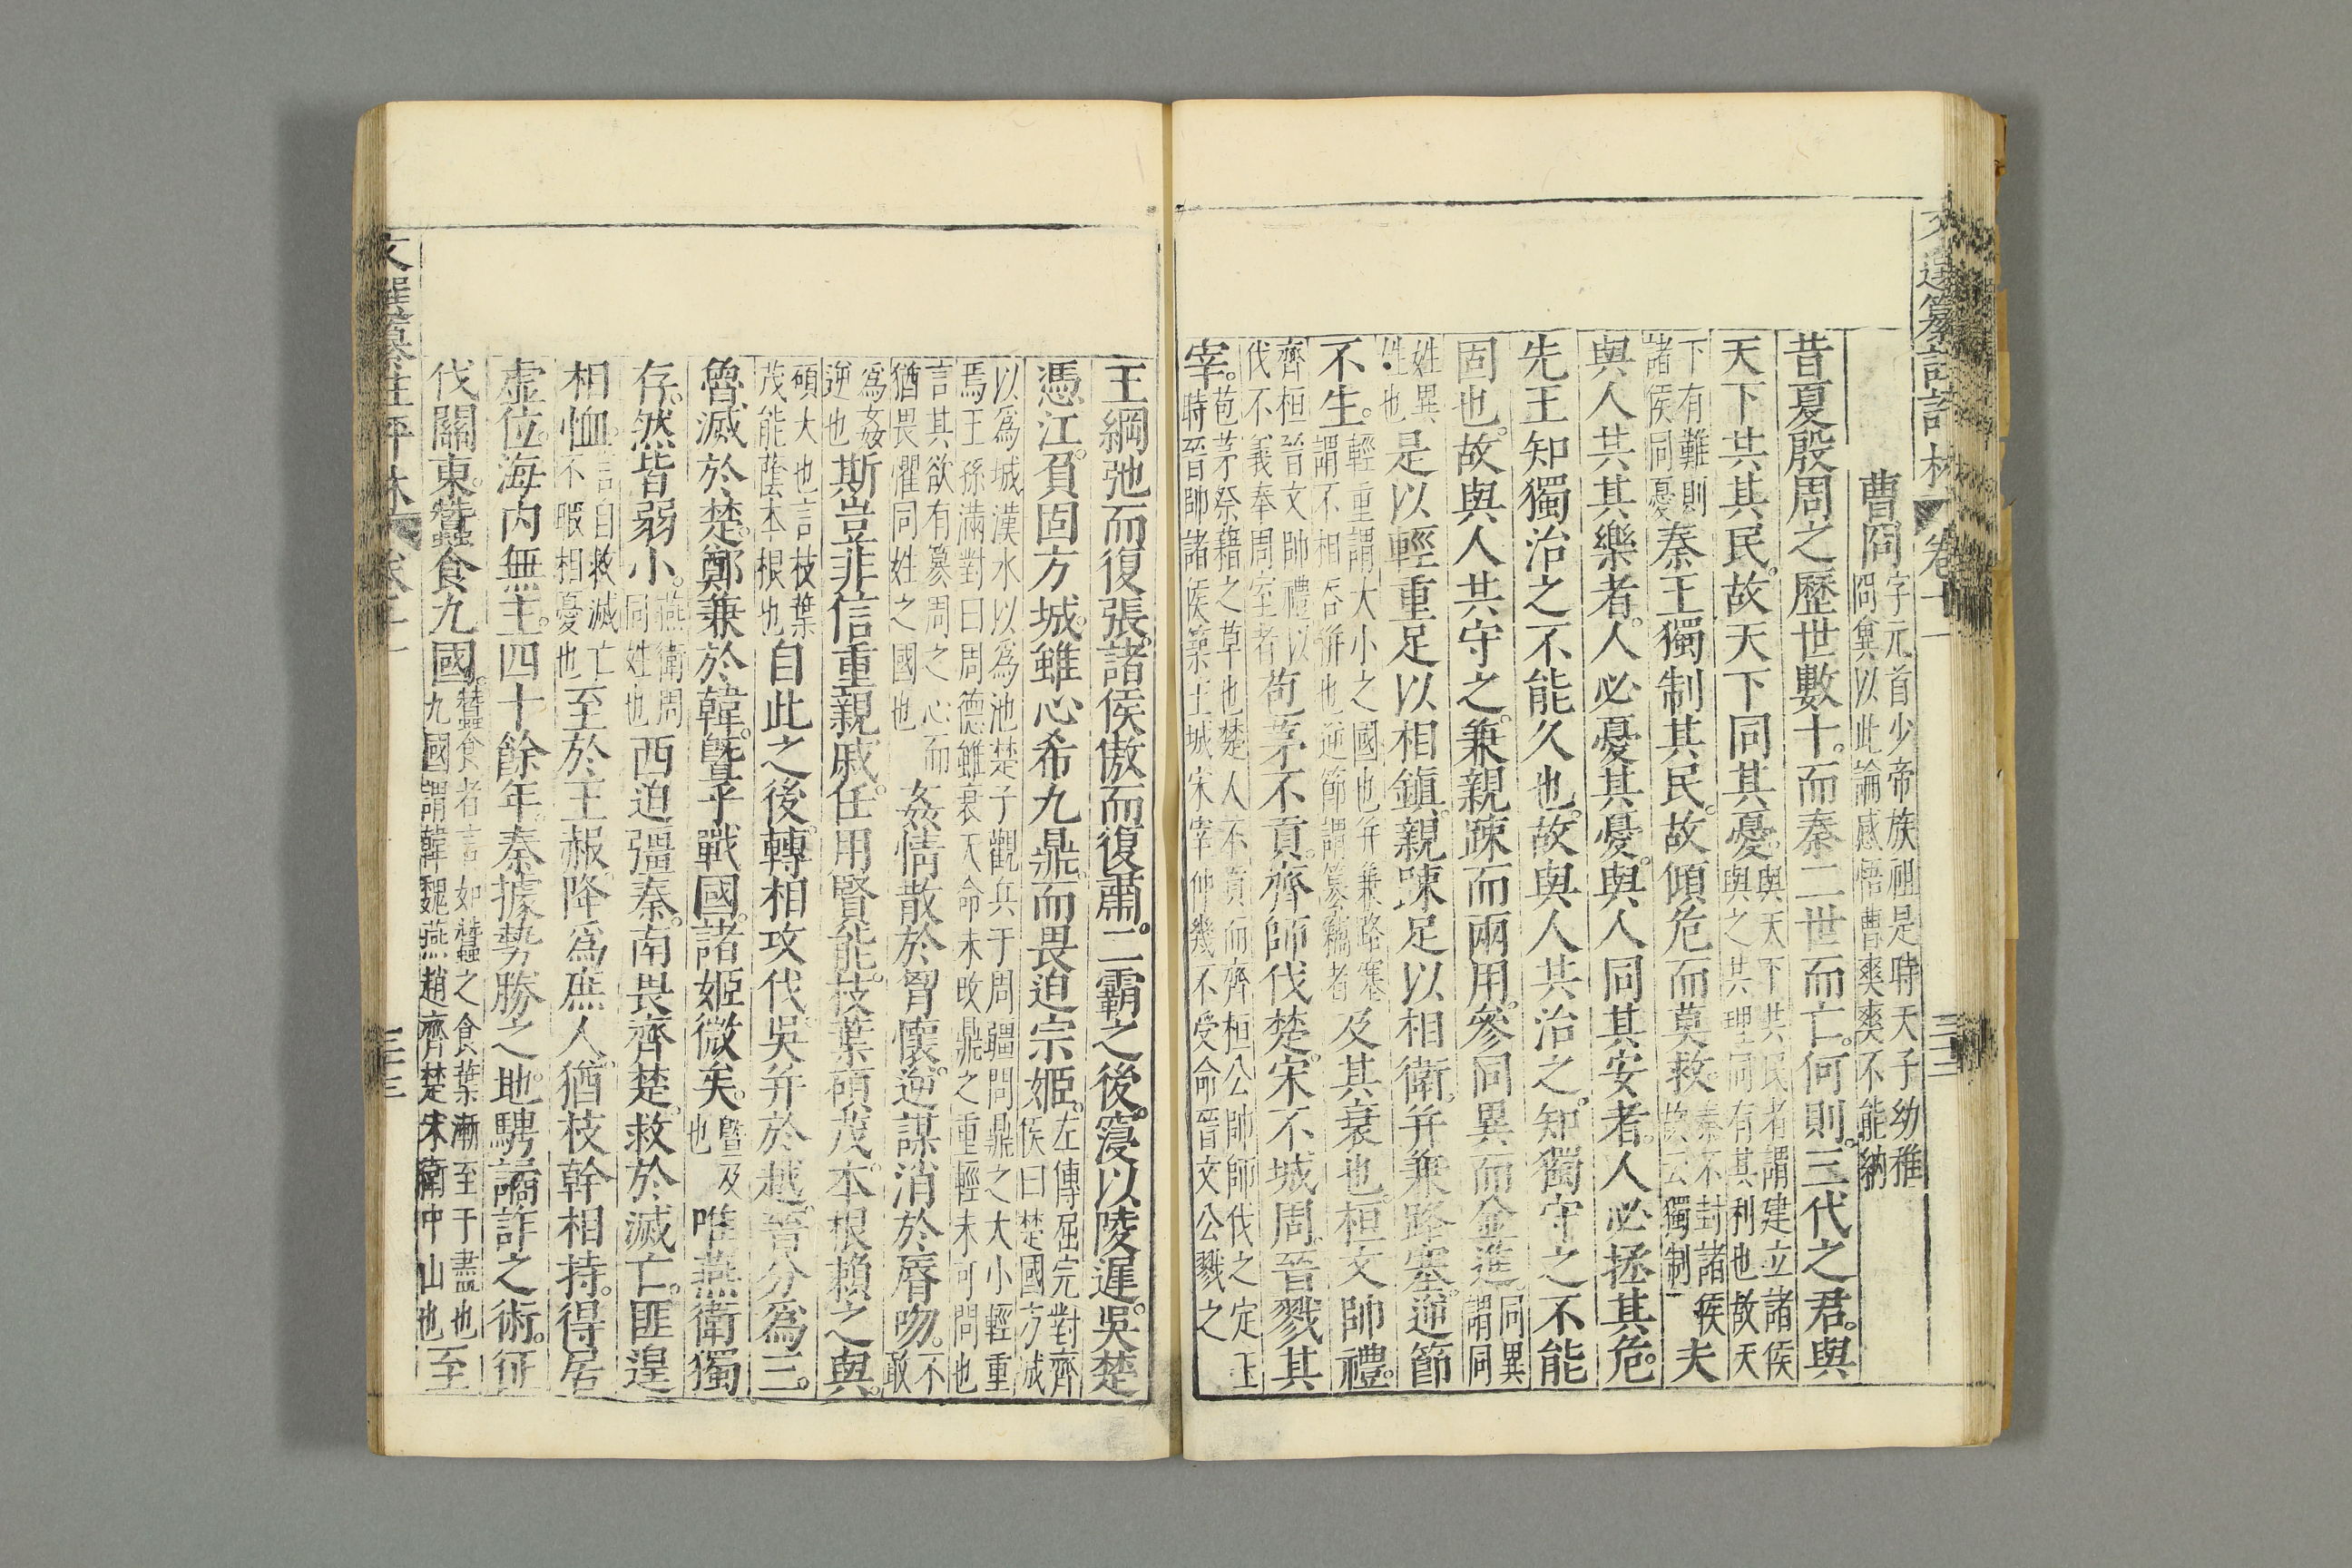 文選纂註評林 卷十一
曹冏 字元首少帝族祖是時天子幼稚冏冀以此論感悟曹爽爽不能納
昔夏殷周之歷世數十。而秦二世而亡。何則。三代之君。與
天下共其民。故天下同其憂。與天下共民者謂建立諸侯與之共理同有其利也故天
下有難則諸侯同憂秦王獨制其民。故傾危而莫救。秦不封諸侯故云獨制夫
與人共其樂者。人必憂其憂。與人同其安者。人必拯其危。
先王知獨治之不能久也。故與人共治之。知獨守之不能
固也。故與人共守之。兼親疎而兩用。參同異而並進。同異謂同
姓異姓也是以輕重足以相鎮。親疎足以相衛。并兼路塞。逆節
不生。輕重謂大小之國也并兼路塞謂不相吞併也逆節謂篡竊者及其衰也。桓文帥禮。
齊桓晉文帥禮以伐不義奉周室者苞茅不貢。齊師伐楚。宋不城周。晉戮其
宰。苞茅祭藉之草也楚人不貢而齊桓公帥師伐之定王時晉帥諸侯築王城宋宰仲幾不受命晉文公戮之
王綱弛而復張。諸侯傲而復肅。二霸之後。寖以陵遲。吳楚
憑江。負固方城。雖心希九鼎。而畏迫宗姬。左傳屈完對齊侯曰楚國方城
以為城漢水以為池楚子觀兵于周疆問鼎之大小輕重焉王孫滿對曰周德雖衰天命未改鼎之重輕未可問也
言其欲有篡周之心而猶畏懼同姓之國也姦情散於胷懷。逆謀消於脣吻。不敢
為姦逆也斯豈非信重親戚。任用賢能。枝葉碩茂。本根賴之與。
碩大也言枝葉茂能蔭本根也自此之後。轉相攻伐。吳并於越。晉分為三。
魯滅於楚。鄭兼於韓。曁乎戰國。諸姬微矣。曁及也唯燕衛獨
存。然皆弱小。燕衛周同姓也西迫彊秦。南畏齊楚。救於滅亡。匪遑
相恤。言自救滅亡不暇相憂也至於王赧。降為庶人。猶枝幹相持。得居
虛位。海內無主。四十餘年。秦據勢勝之地。騁譎詐之術。征
伐關東。蠶食九國。蠶食者言如蠶之食葉漸至于盡也九國謂韓魏燕趙齊楚宋衛中山也至
文選纂註評林 卷十一